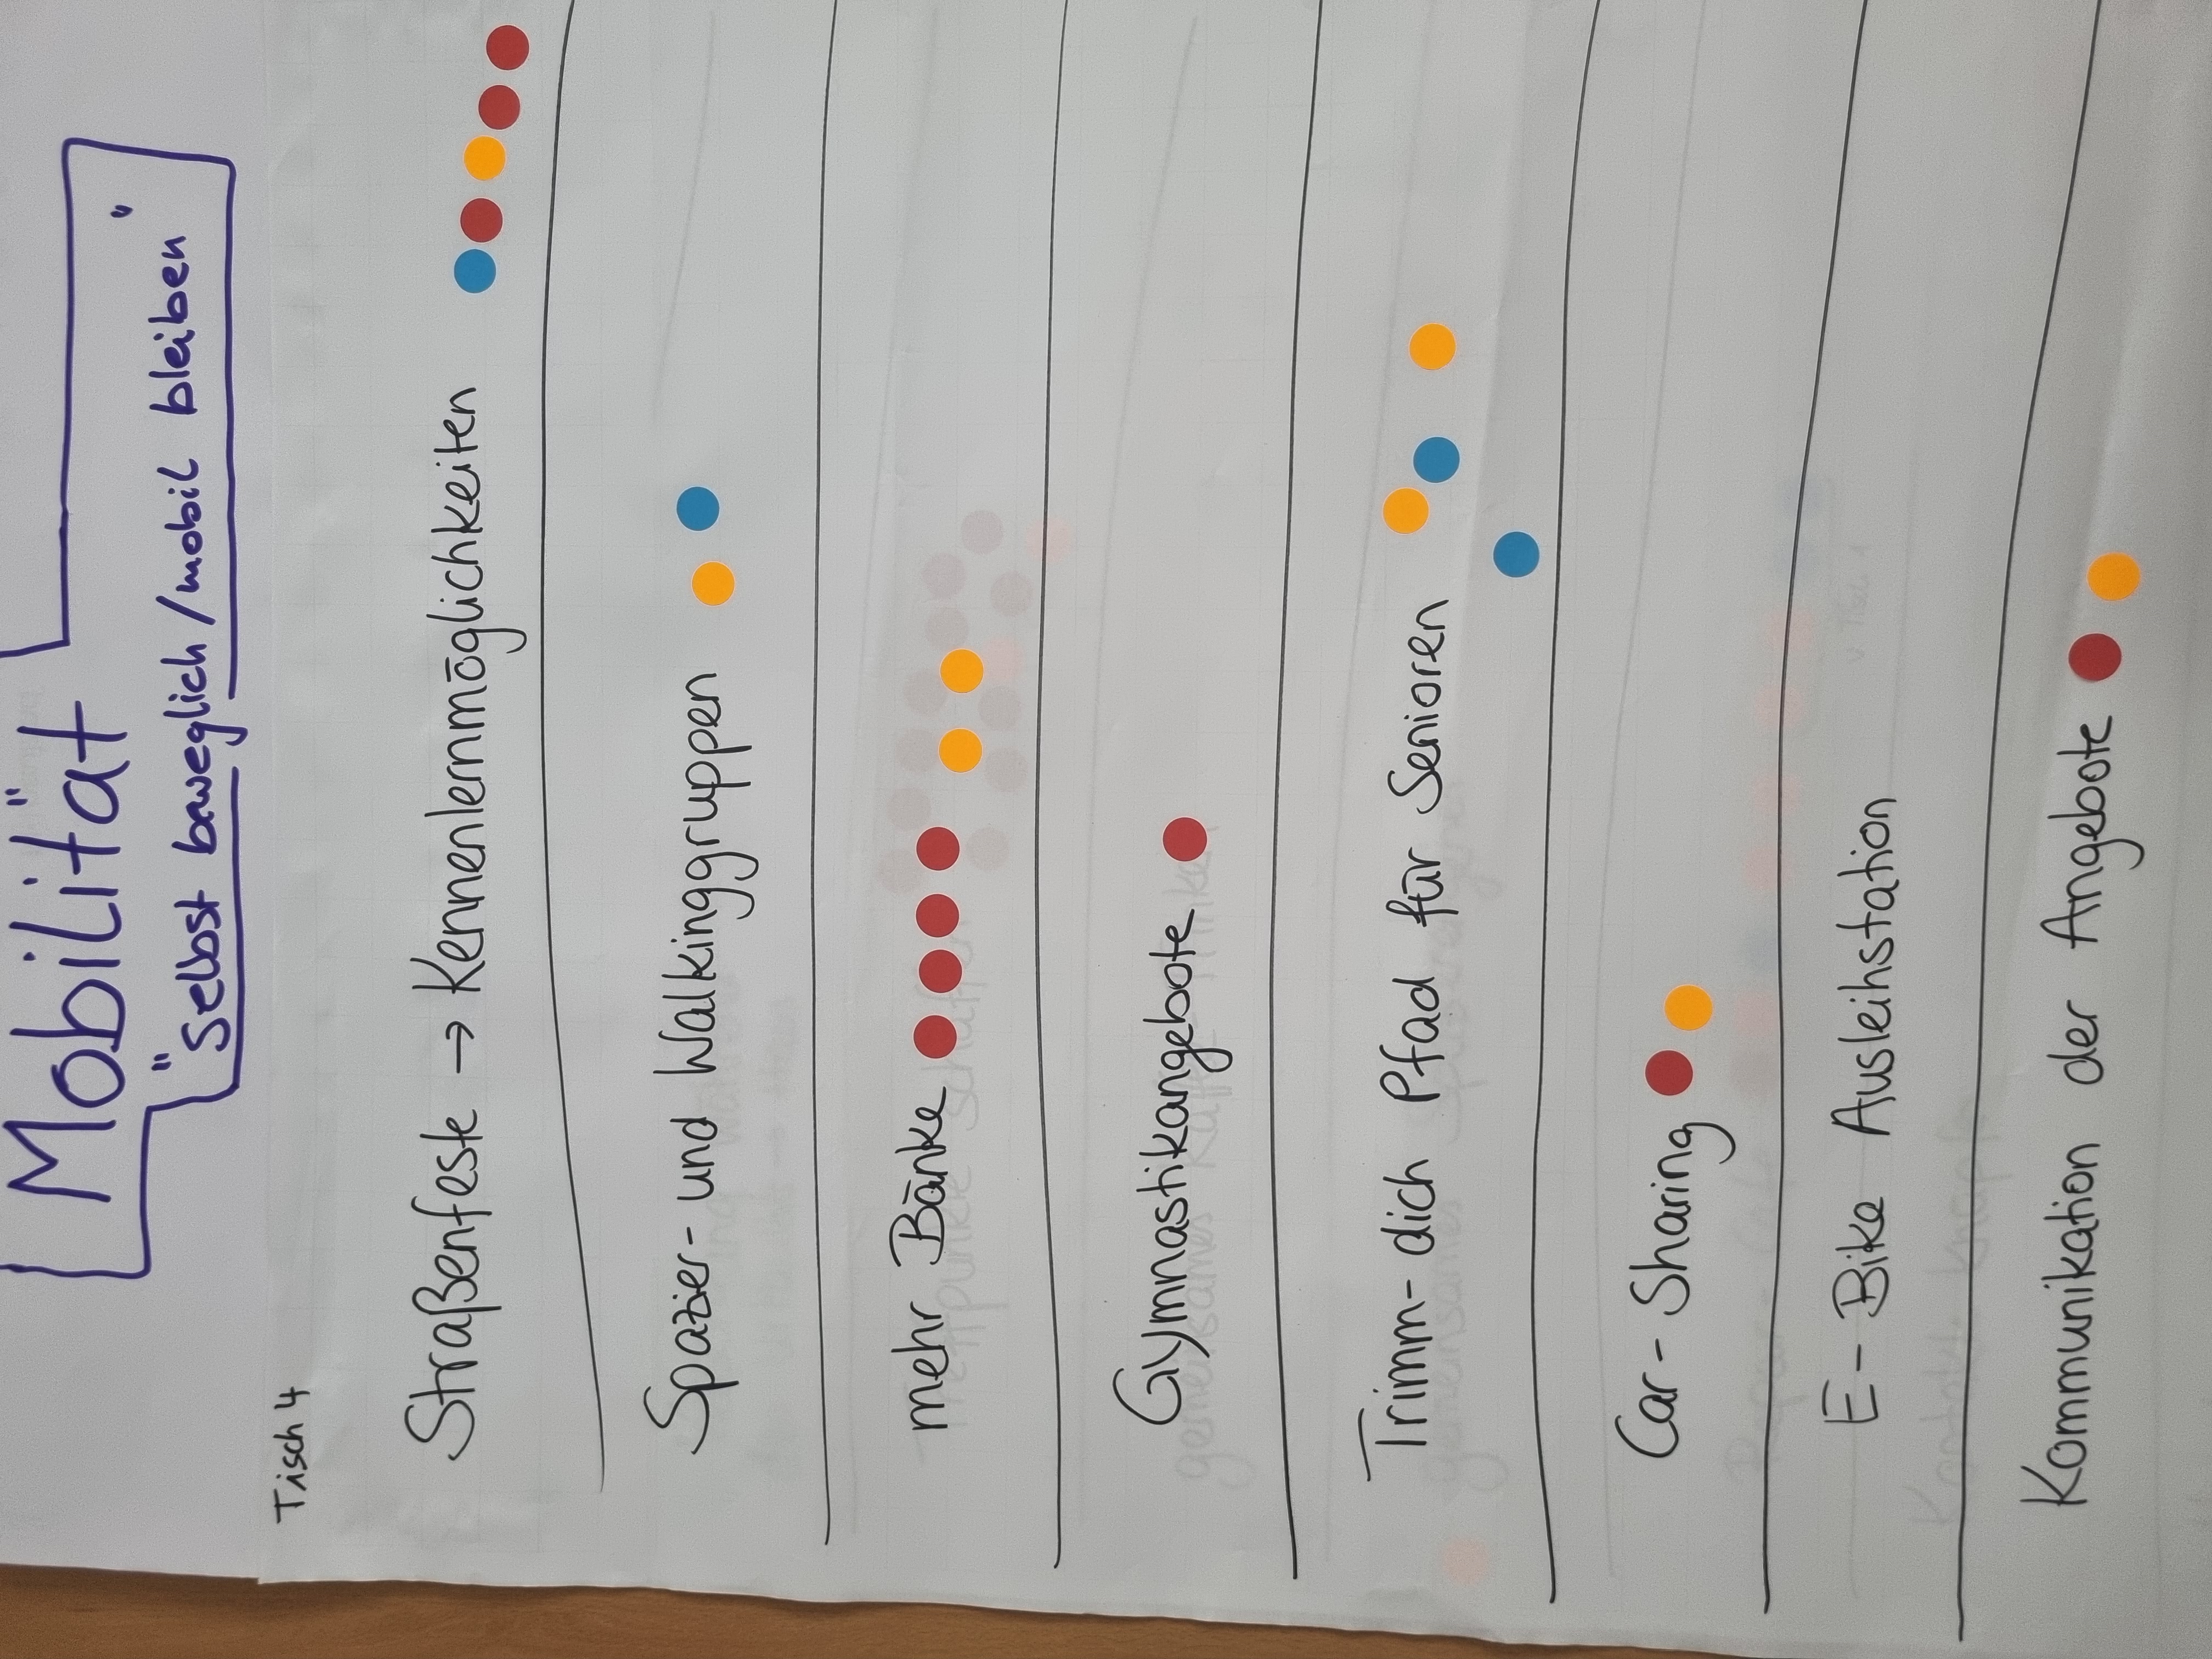 Mobilität
"Selbst beweglich/mobil bleiben"
Tisch 4
Straßenfeste → Kennenlernmöglichkeiten
Spazier- und Walkinggruppen
mehr Bänke
Gymnastikangebote
Trimm-dich Pfad für Senioren
Car-Sharing
E-Bike Ausleihstation
Kommunikation der Angebote